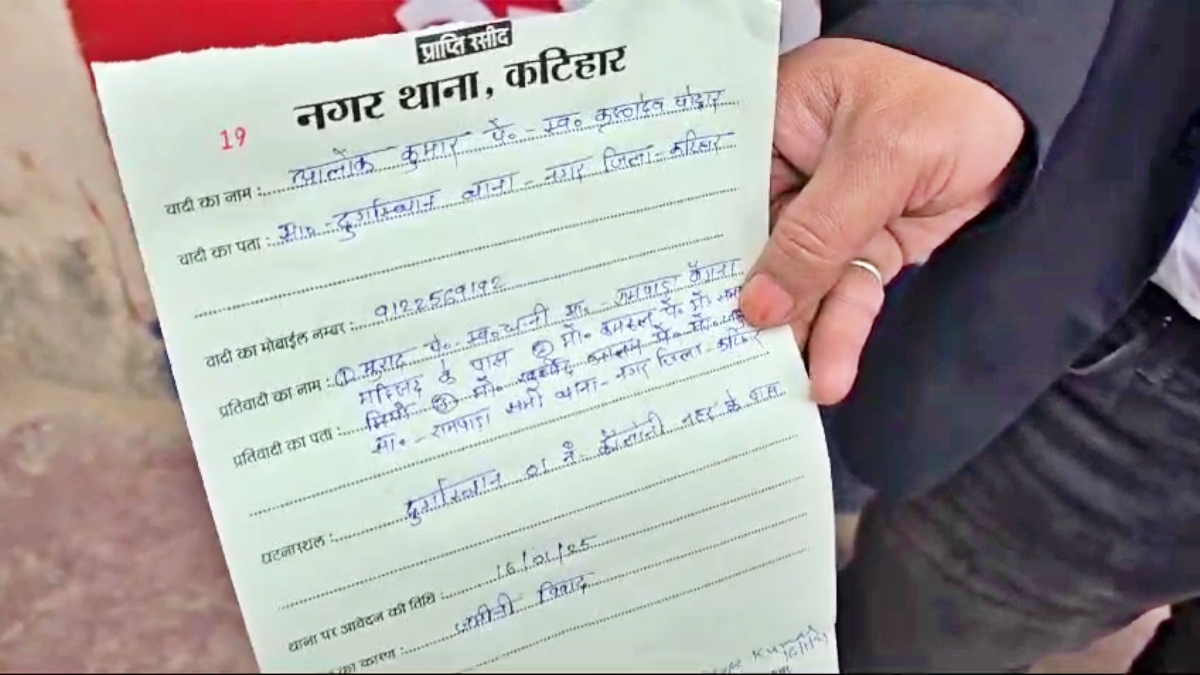 प्राप्ति रसीद
नगर थाना, कटिहार
19
वादी का नाम : आलोक कुमार पे०- स्व० कृत्यदेव पोद्दार
वादी का पता : सा०- दुर्गास्थान थाना- नगर जिला- कटिहार
वादी का मोबाईल नम्बर : 9122569192
प्रतिवादी का नाम : ① मुराद पे०- स्व० सा०- रामपाड़ा
मस्जिद के पास ② मो० पे० मो०
मियाँ ③ मो० खुर्शीद आलम पे०
प्रतिवादी का पता : सा०- रामपाड़ा सभी थाना- नगर जिला- कटिहार
घटनास्थल : दुर्गास्थान 01 नं० कॉलोनी नहर के पास
थाना पर आवेदन की तिथि : 16/01/25
का कारण : जमीनी विवाद